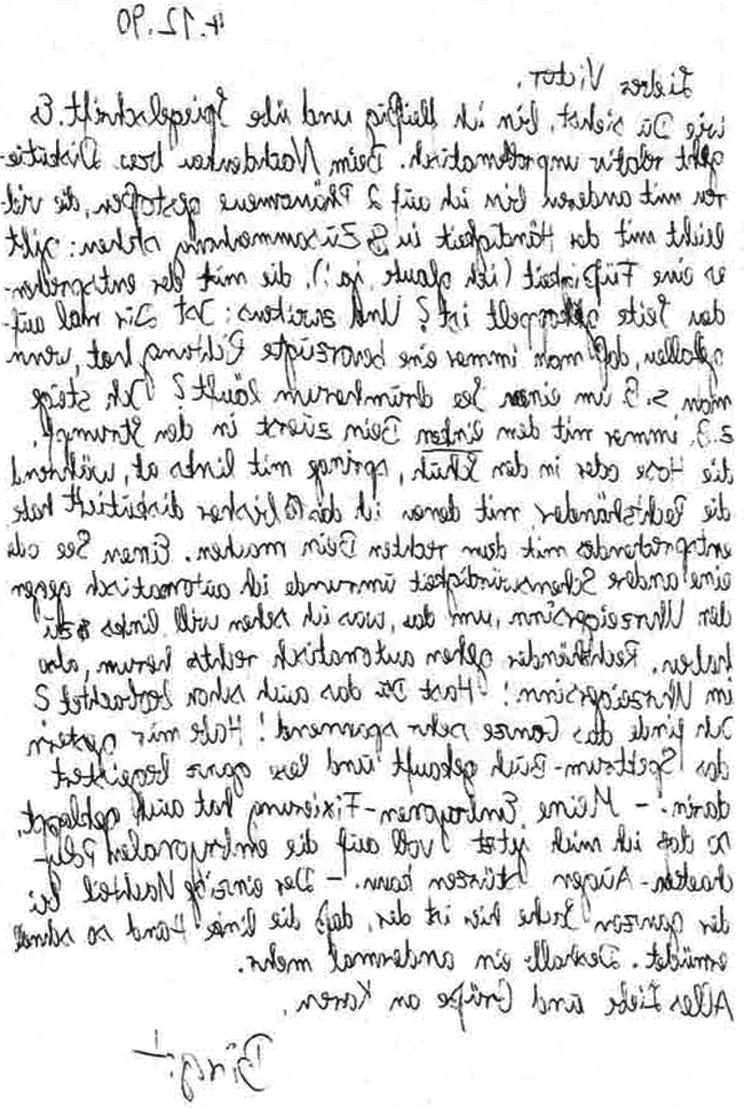 4.12.90
Lieber Victor,
wie Du siehst, bin ich fleißig und übe Spiegelschrift. Es
geht relativ unproblematisch. Beim Nachdenken bzw. Diskutie-
ren mit anderen bin ich auf 2 Phänomene gestoßen, die viel-
leicht mit der Händigkeit in Zusammenhang stehen: gibt
es eine Füßigkeit (ich glaube ja!), die mit der entsprechen-
den Seite gekoppelt ist? Und zweitens: Ist Dir mal auf-
gefallen, daß man immer eine bevorzugte Richtung hat, wenn
man z.B. um einen See drumherum läuft? Ich steige
z.B. immer mit dem linken Bein zuerst in den Strumpf,
die Hose oder in den Schuh, springe mit links ab, während
die Rechtshänder, mit denen ich das bisher diskutiert habe
entsprechendes mit dem rechten Bein machen. Einen See oder
eine andere Sehenswürdigkeit umrunde ich automatisch gegen
den Uhrzeigersinn, um das, was ich sehen will links zu
haben. Rechtshänder gehen automatisch rechts herum, also
im Uhrzeigersinn! Hast Du das auch schon beobachtet?
Ich finde das Ganze sehr spannend! Habe mir gestern
das Spektrum-Buch gekauft und lese ganz begeistert
darin. – Meine Embryonen-Fixierung hat auch geklappt,
so daß ich mich jetzt voll auf die embryonalen Poly-
chaeten-Augen stürzen kann. – Der einzige Nachteil bei
der ganzen Sache hier ist der, daß die linke Hand so schnell
ermüdet. Deshalb ein andermal mehr.
Alles Liebe und Grüße an Karen,
Birgit